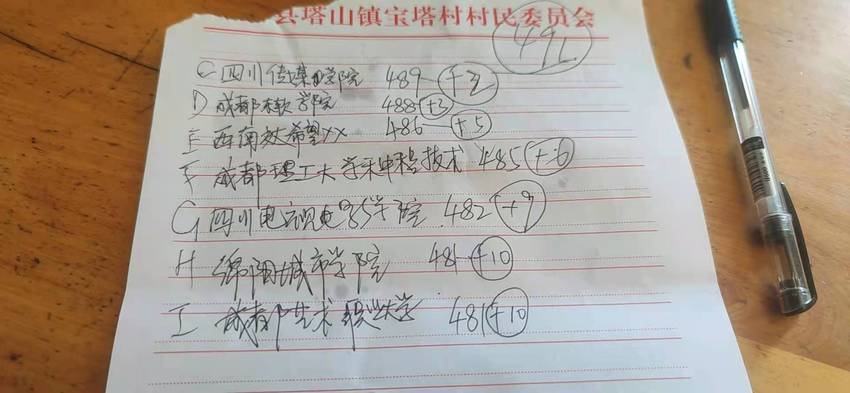 县塔山镇宝塔村村民委员会
491
C 四川传媒学院 489 +2
D 成都 学院 488 +3
E 西南交希望XX 486 +5
F 成都理工大学 技术 485 +6
G 四川电影电视学院 482 +9
H 绵阳城市学院 481 +10
I 成都艺术职业大学 481 +10